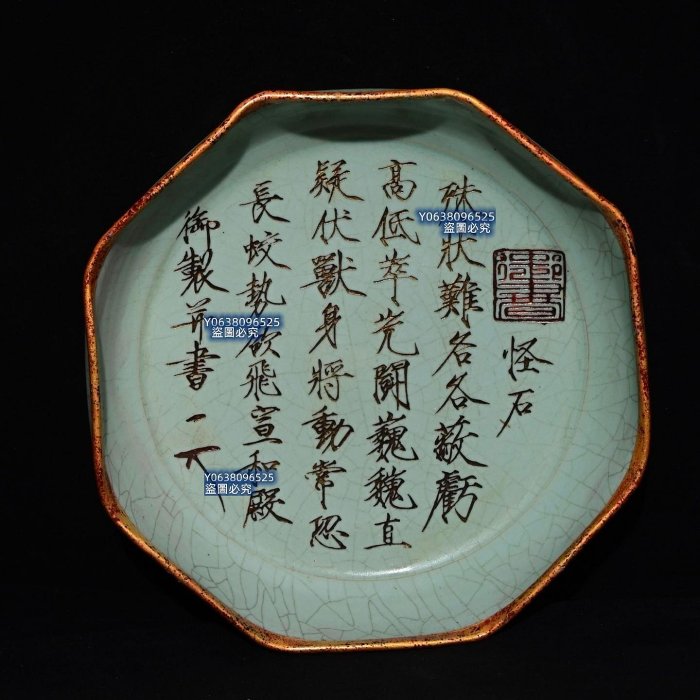 御書
怪石
殊狀難名各蔽虧
高低萃岌鬪巍巍直
疑伏獸身將動常恐
長蛟勢欲飛宣和殿
御製并書
Y0638096525
盜圖必究
Y0638096525
盜圖必究
Y0638096525
盜圖必究